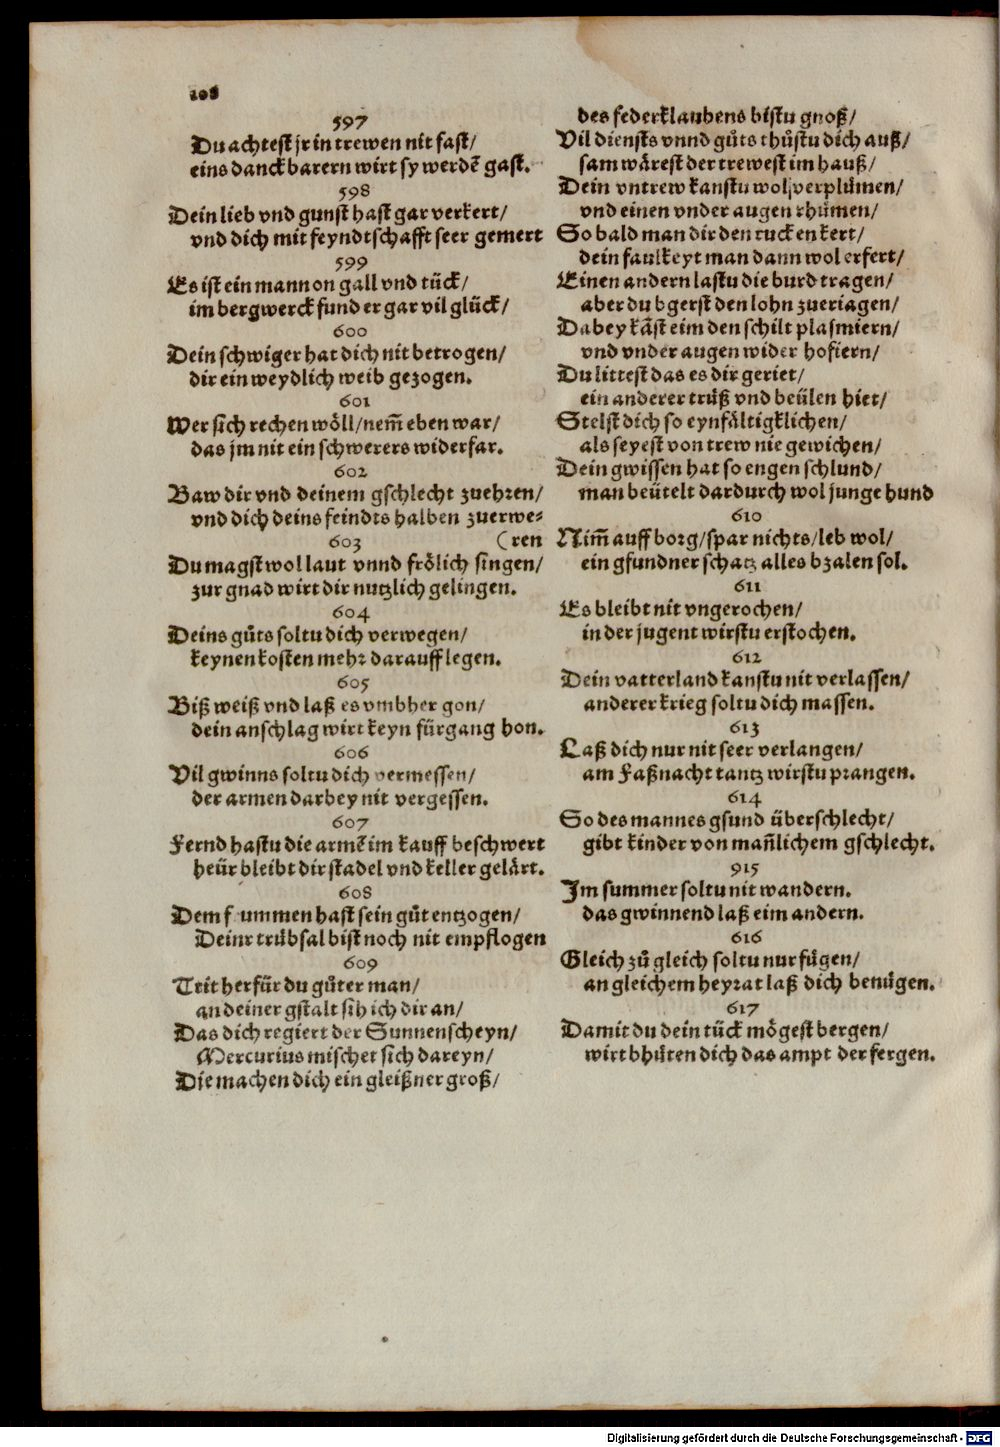 108
597
Du achtest jr in trewen nit fast/
eins danckbarern wirt sy werdē gast.
598
Dein lieb vnd gunst hast gar verkert/
vnd dich mit feyndtschafft seer gemert
599
Es ist ein man on gall vnd tück/
im bergwerck fund er gar vil glück/
600
Dein schwiger hat dich nit betrogen/
dir ein weydlich weib gezogen.
601
Wer sich rechen wöll/nem̄ eben war/
das jm nit ein schwerers widerfar.
602
Baw dir vnd deinem gschlecht zuehren/
vnd dich deins feindts halben zuerwe⸗
603 (ren
Du magst wol laut vnnd frölich singen/
zur gnad wirt dir nutzlich gelingen.
604
Deins gůts soltu dich verwegen/
keynen kosten mehr darauff legen.
605
Biß weiß vnd laß es vmbher gon/
dein anschlag wirt keyn fürgang hon.
606
Vil gwinns soltu dich vermessen/
der armen darbey nit vergessen.
607
Fernd hastu die armē im kauff beschwert
heür bleibt dir stadel vnd keller gelärt.
608
Dem f ummen hast sein gůt entzogen/
Deinr trübsal bist noch nit empflogen
609
Trit herfür du gůter man/
an deiner gstalt sih ich dir an/
Das dich regiert der Sunnenscheyn/
Mercurius mischet sich dareyn/
Die machen dich ein gleißner groß/
des federklaubens bistu gnoß/
Vil diensts vnnd gůts thůstu dich auß/
sam wärest der trewest im hauß/
Dein vntrew kanstu wol verplůmen/
vnd einen vnder augen rhümen/
So bald man dir den rucken kert/
dein faulkeyt man dann wol erfert/
Einen andern lastu die burd tragen/
aber du bgerst den lohn zueriagen/
Dabey kāst eim den schilt plasmiern/
vnd vnder augen wider hofiern/
Du littest das es dir geriet/
ein anderer trüß vnd beülen hiet/
Stelst dich so eynfältigklichen/
als seyest von trew nie gewichen/
Dein gwissen hat so engen schlund/
man beütelt dardurch wol junge hund
610
Nim̄ auff borg/spar nichts/leb wol/
ein gfundner schatz alles bzalen sol.
611
Es bleibt nit vngerochen/
in der jugent wirstu erstochen.
612
Dein vatterland kanstu nit verlassen/
anderer krieg soltu dich massen.
613
Laß dich nur nit seer verlangen/
am Faßnacht tantz wirstu prangen.
614
So des mannes gsund überschlecht/
gibt kinder von man̄lichem gschlecht.
915
Im summer soltu nit wandern.
das gwinnend laß eim andern.
616
Gleich zů gleich soltu nur fügen/
an gleichem heyrat laß dich benügen.
617
Damit du dein tück mögest bergen/
wirt bhüten dich das ampt der fergen.
Digitalisierung gefördert durch die Deutsche Forschungsgemeinschaft - DFG